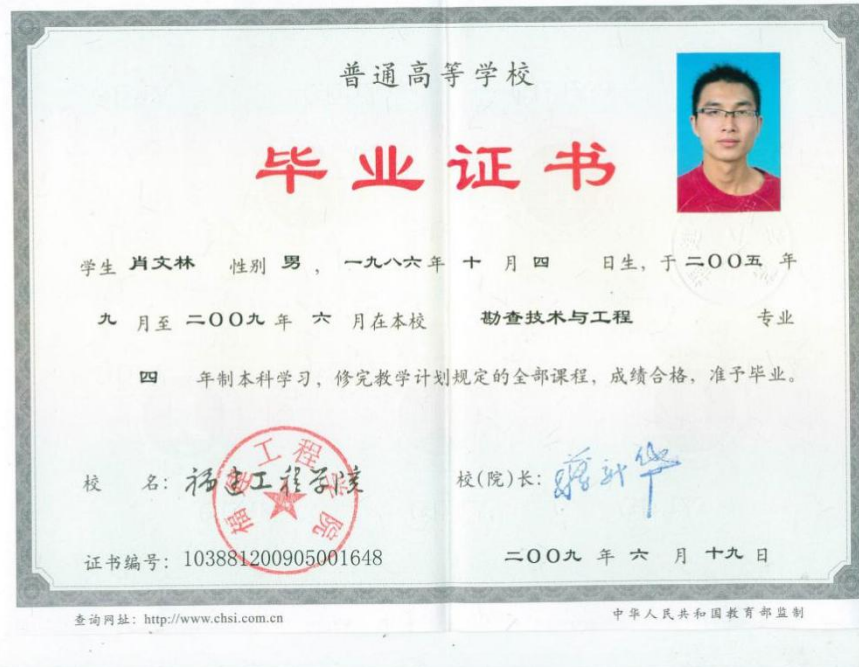 普通高等学校
毕业证书
学生 肖文林 性别 男 ，一九八六年 十 月 四 日生，于二〇〇五 年
九 月至 二〇〇九 年 六 月在本校 勘查技术与工程 专业
四 年制本科学习，修完教学计划规定的全部课程，成绩合格，准予毕业。
校 名：福建工程学院
福建工程学院
校(院)长：蒋新华
证书编号：103881200905001648
二〇〇九 年 六 月 十九 日
查询网址：http://www.chsi.com.cn
中华人民共和国教育部监制